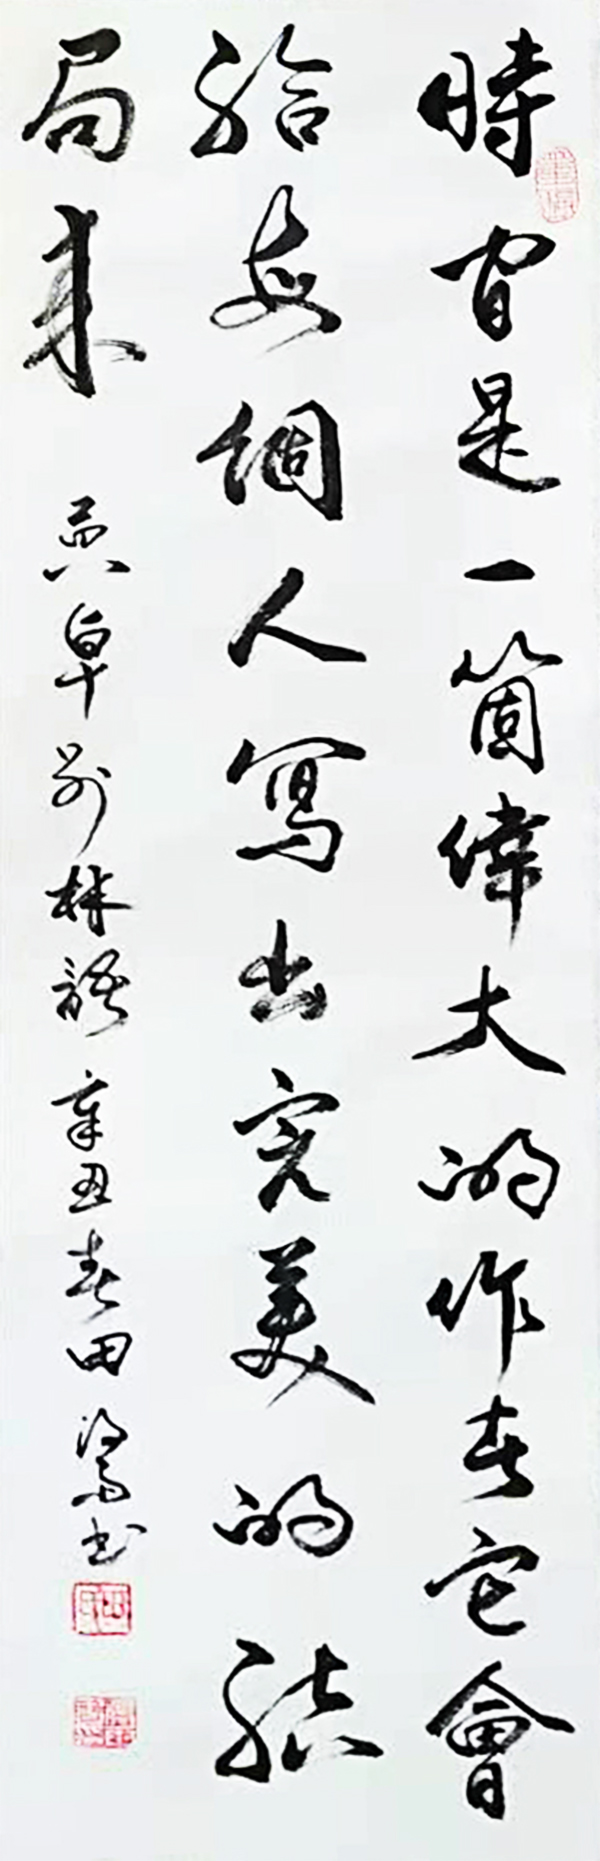 時间是一箇偉大的作者它會
給每個人寫出完美的結
局来  卓别林語 辛丑春田
書